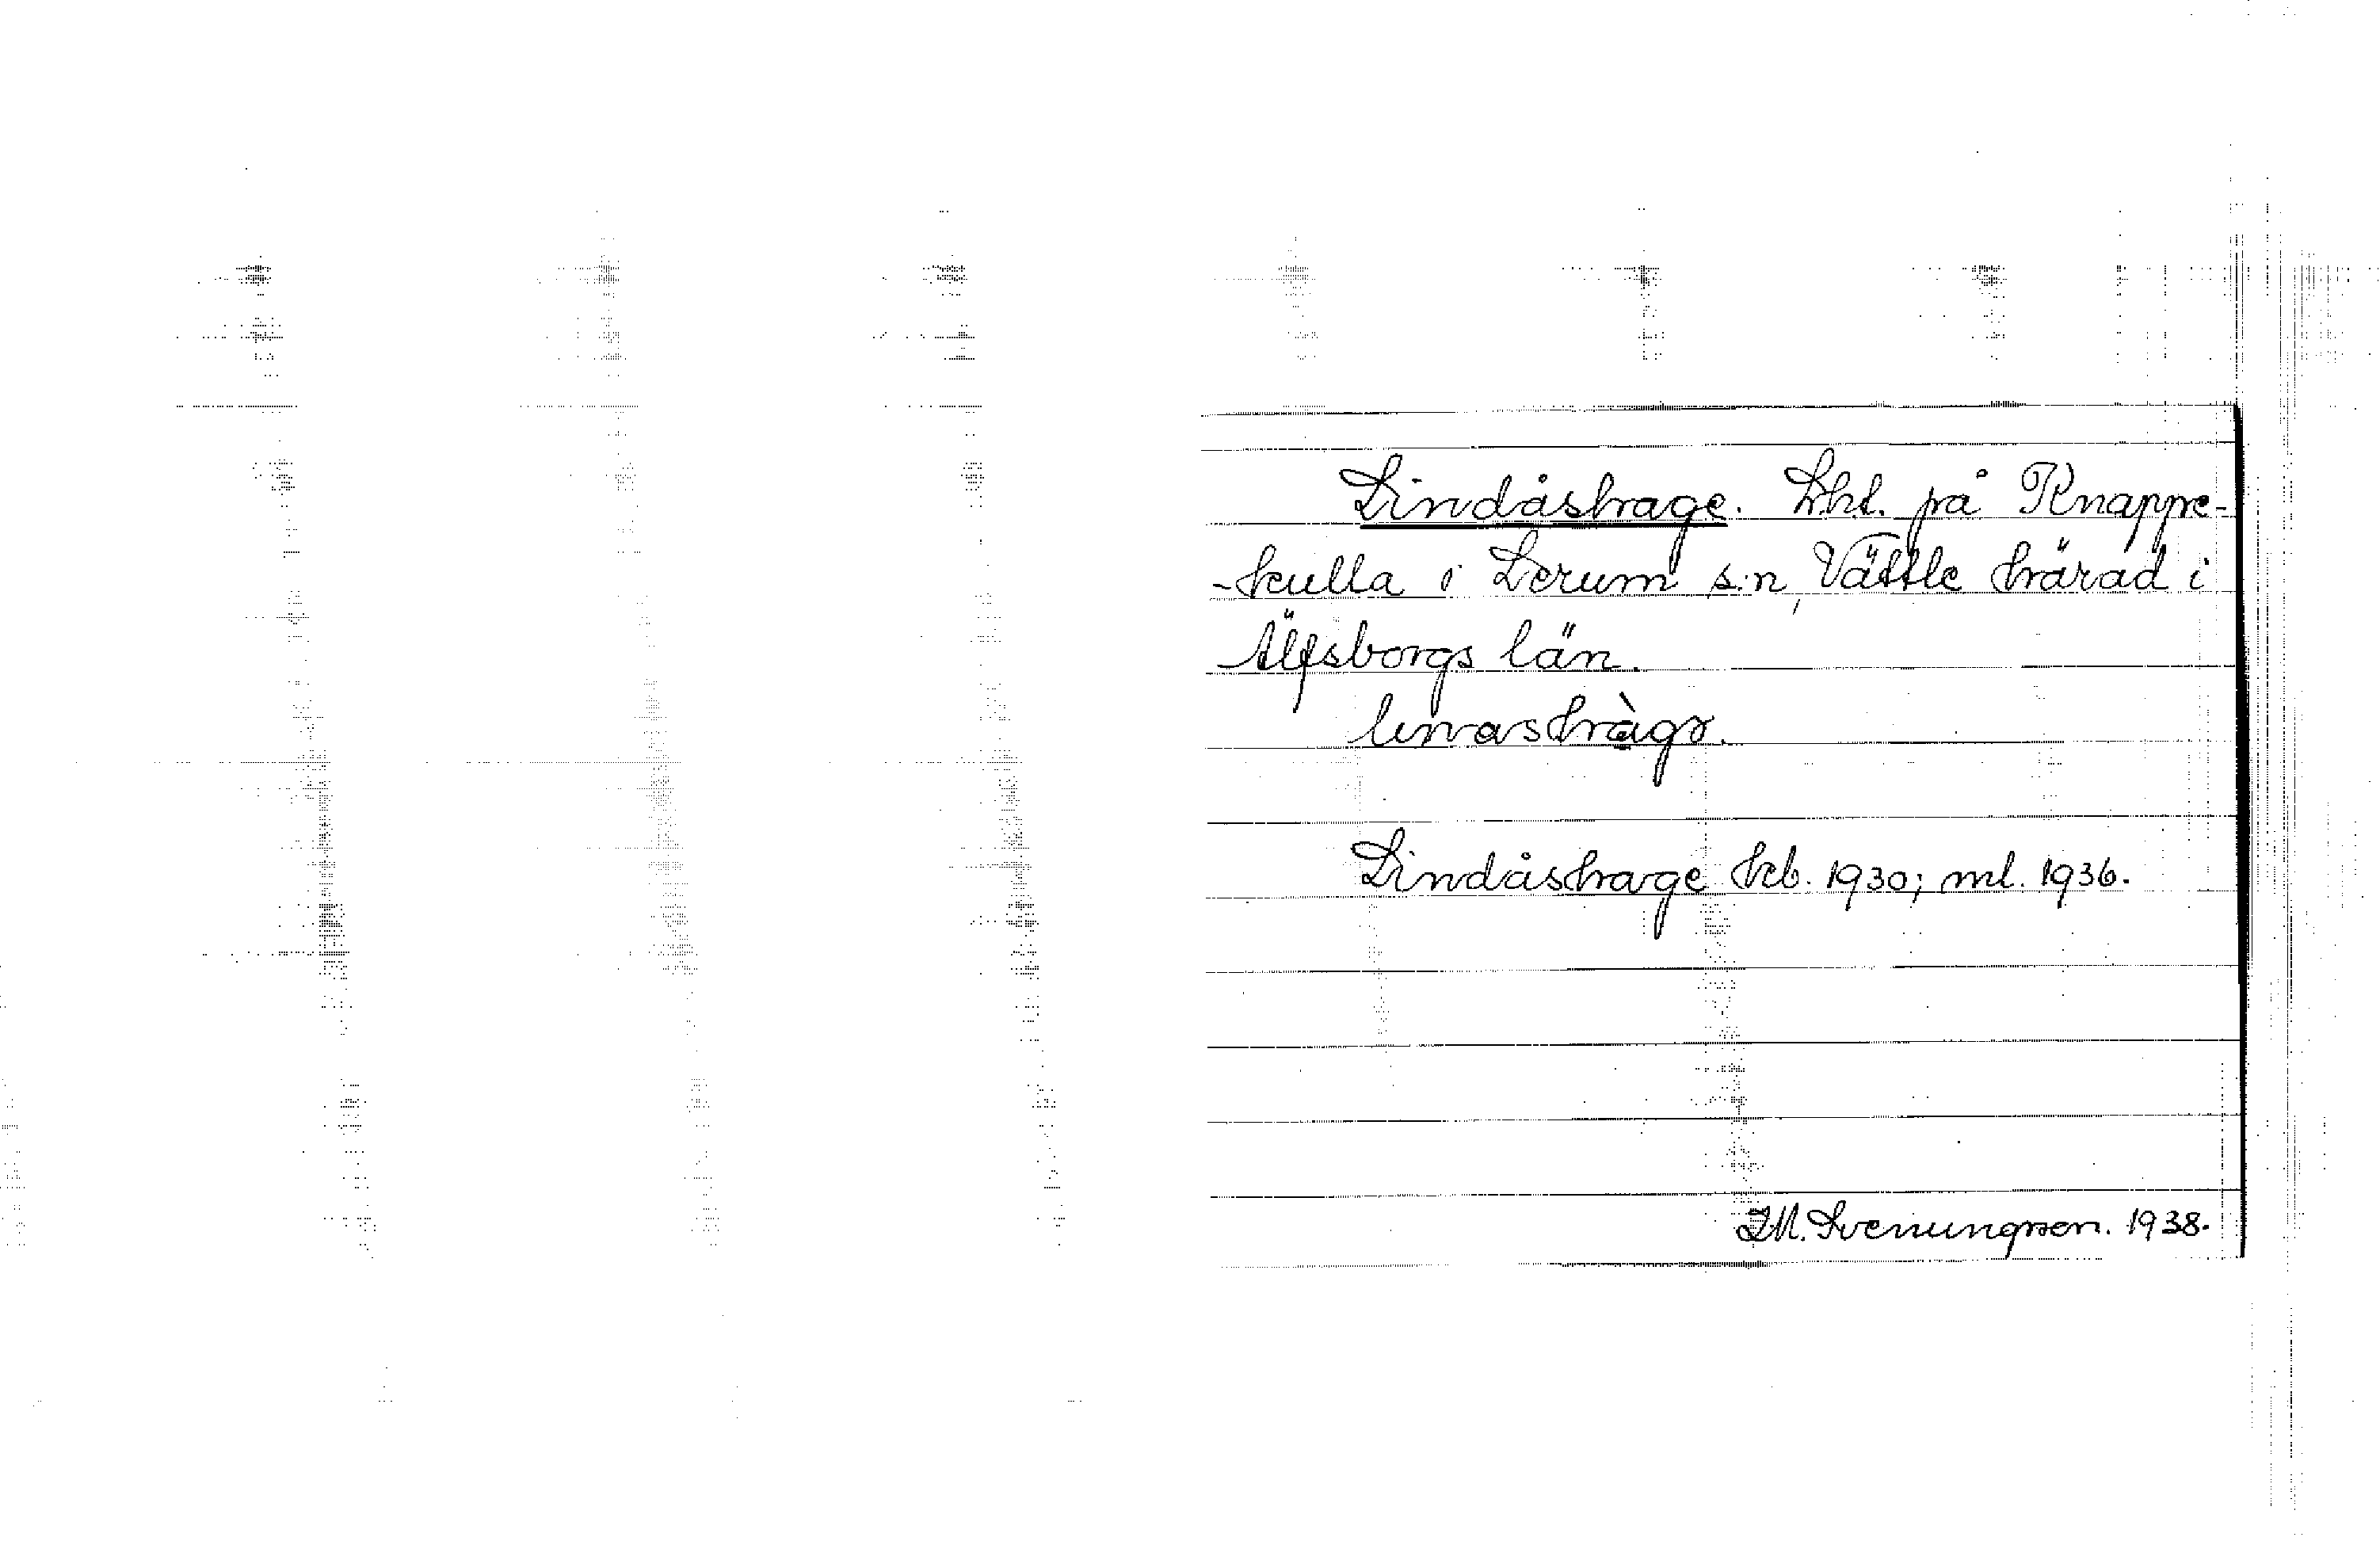 Lindåshage. Lht. på Knappe-
-kulla i Lerum s:n, Vättle härad i
Älfsborgs län.
Lindåshage kb. 1930; ml. 1936.
I.M. Svenungsson. 1938.